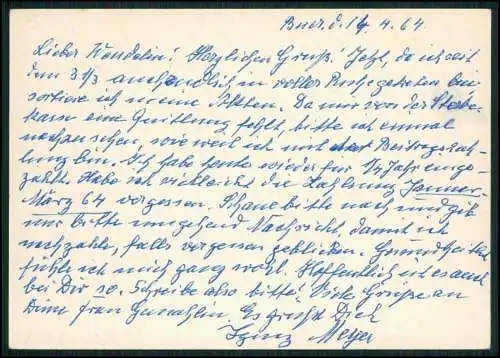 Buer, d. 14.4.64
Lieber Wendelin! Herzlichen Gruß! Jetzt, da ich seit
dem 31/3 auch endlich in voller Ruhe getreten bin
sortiere ich meine Akten. Da mir von der Sterbe-
kasse eine Quittung fehlt, bitte ich einmal
nachzusehen, wie weit ich mit der Beitragszah-
lung bin. Ich habe heute wieder für 1/4 Jahr einge-
zahlt. Habe ich vielleicht die Zahlung Januar-
März 64 vergessen. Schaue bitte nach und gib
mir bitte umgehend Nachricht, damit ich
nachzahle, falls vergessen geblieben. Gesundheitlich
fühle ich mich ganz wohl. Hoffentlich ist es auch
bei Dir so. Schreibe also bitte! Viele Grüße an
Deine Frau Gemahlin. Es grüßt Dich
Meyer